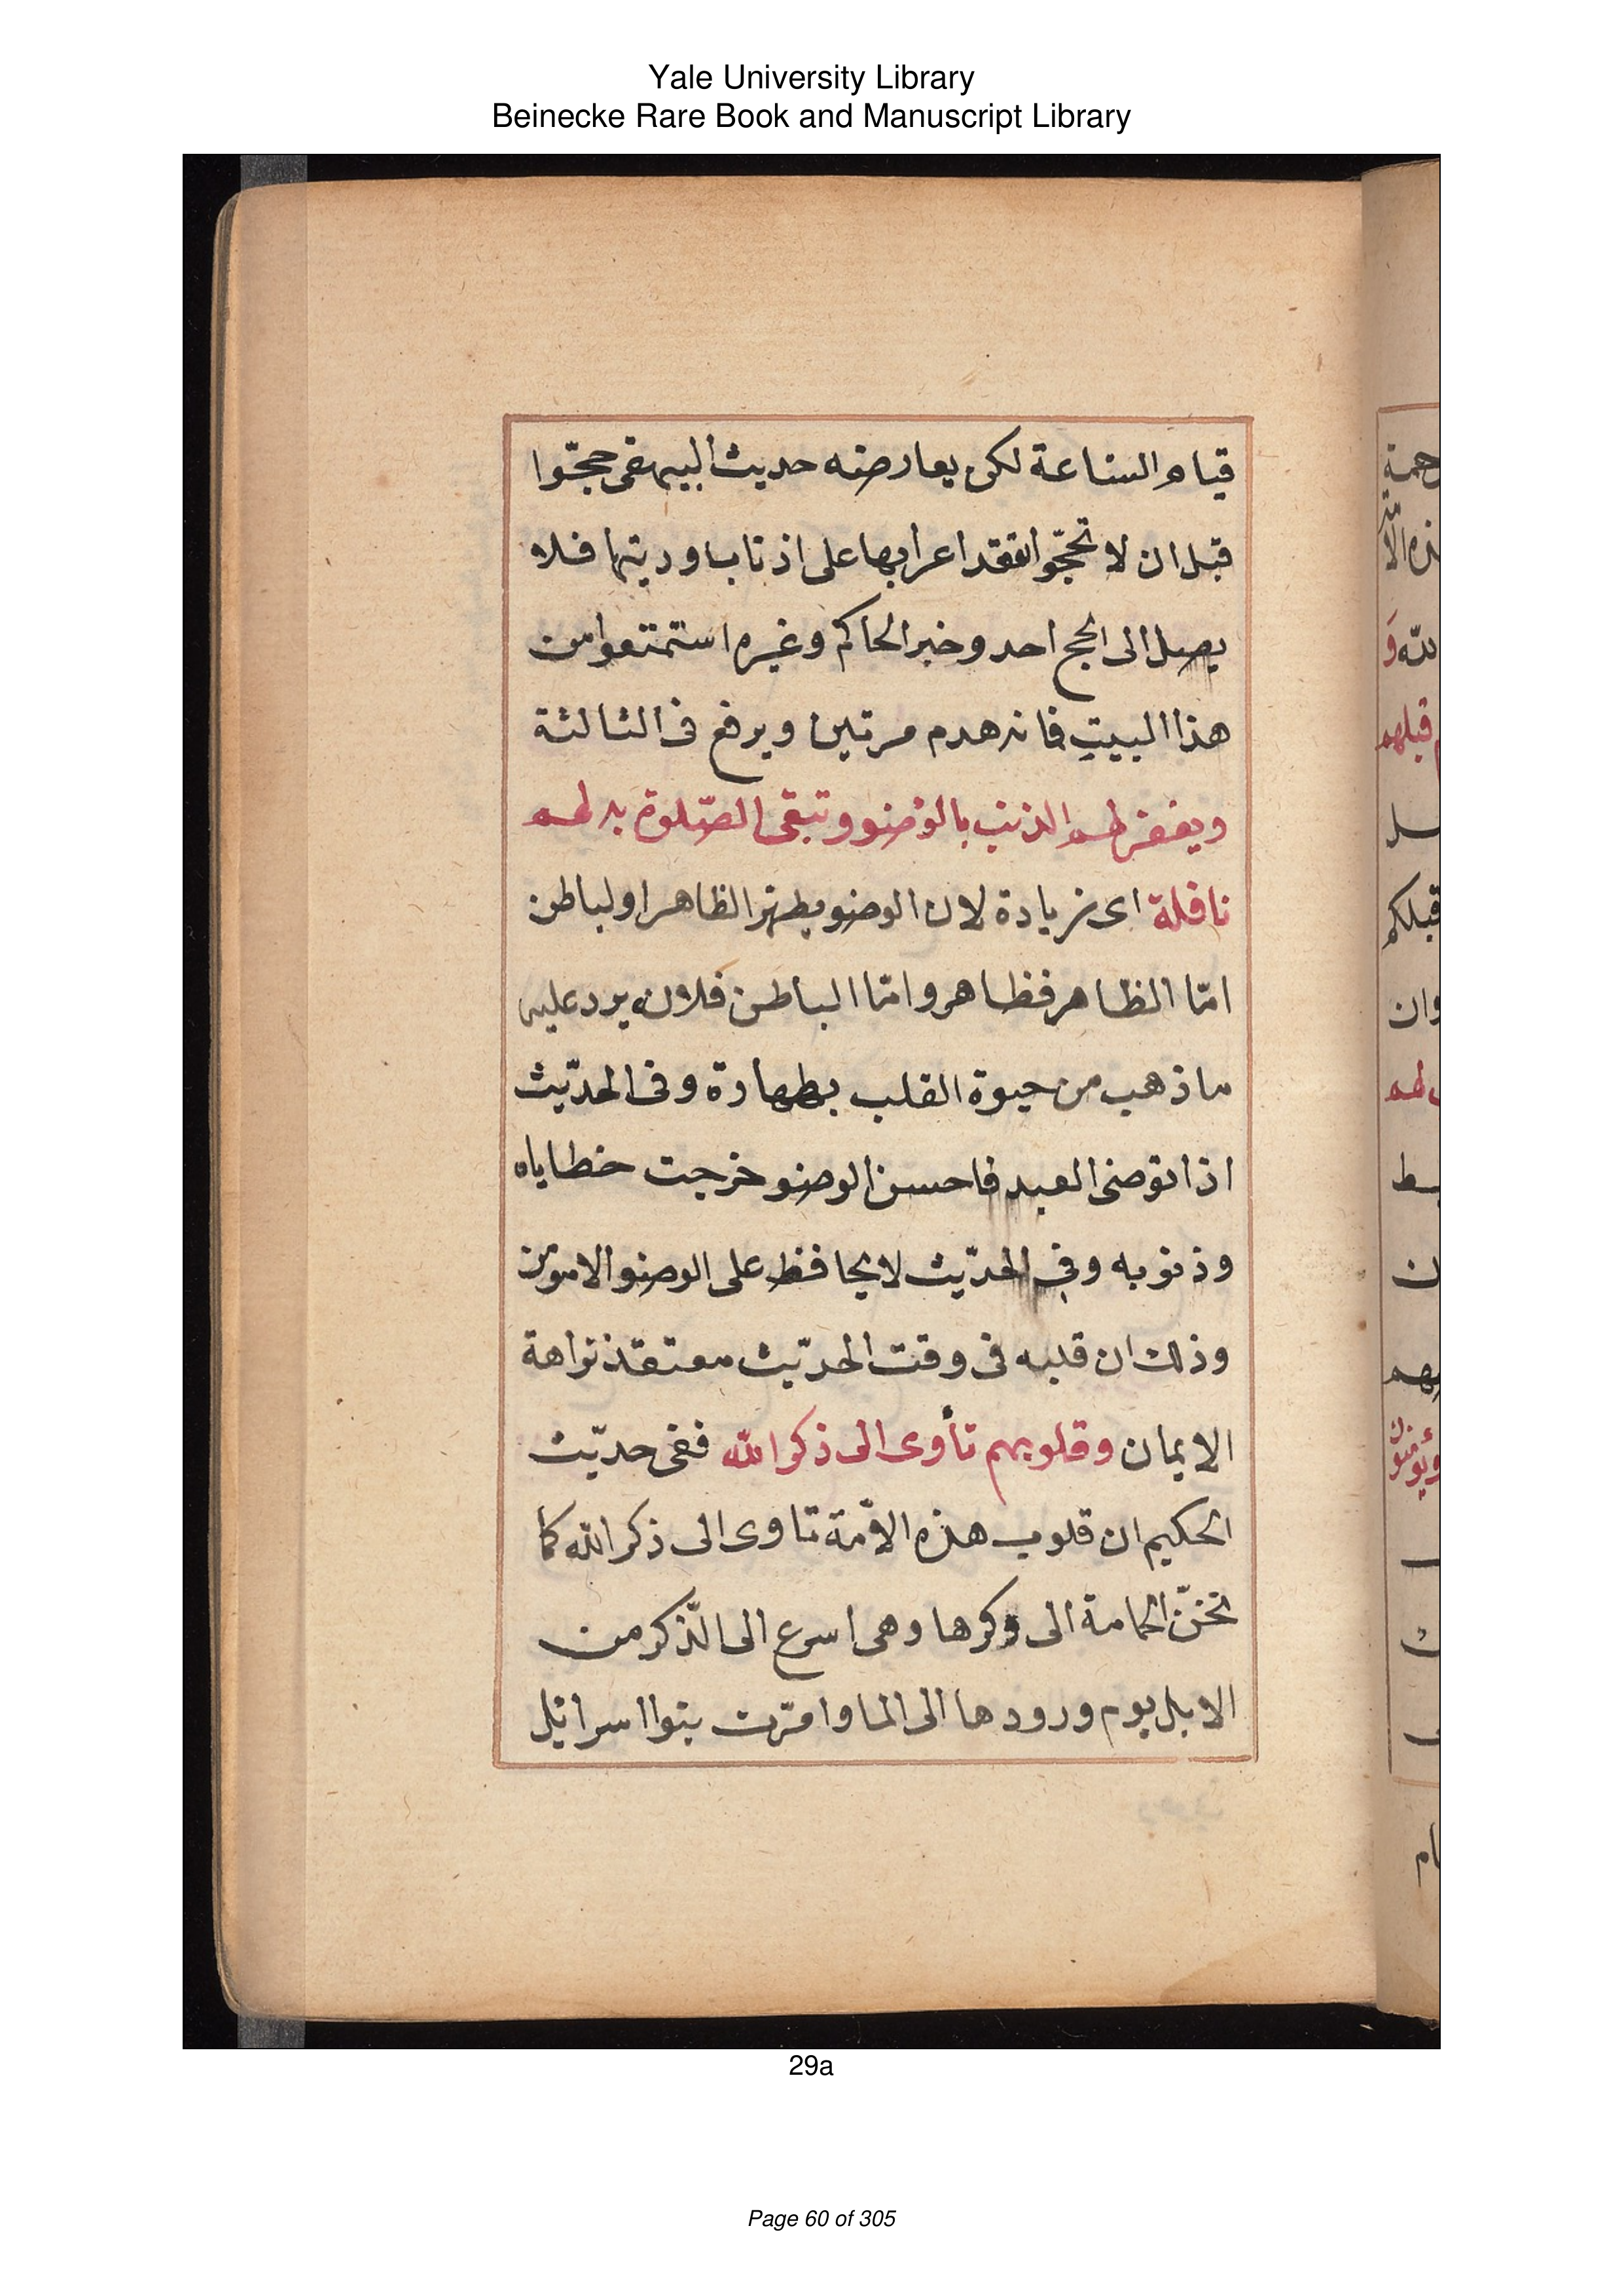 Yale University Library
Beinecke Rare Book and Manuscript Library
قيام الساعة لكن يعارضه حديث البيهقى حجّوا
قبل ان لا تحجّوا تقعد اعرابها على اذناب اوديتها فلا
يصل الى الحج احد وخبر الحاكم وغيره استمتعوا من
هذا البيت فانه هدم مرتين ويرفع فى الثالثة
ويغفر لهم الذنب بالوضو وتبقى الصّلوة به لهم
نافلة اى زيادة لان الوضو يطهر الظاهر اولباطن
امّا الظاهر فظاهر وامّا الباطن فلان يرد عليه
ماذهب من حيوة القلب بطهارة وفى الحدّيث
اذا توضئ العبد فاحسن الوضو خرجت خطاياه
وذنوبه وفى الحدّيث لا يحافظ على الوضو الا مومن
وذلك ان قلبه فى وقت الحدّيث معتقد نزاهة
الايمان وقلوبهم تأوى الى ذكر الله ففى حدّيث
الحكيم ان قلوب هذه الامّة تاوى الى ذكر الله كما
تحنّ الحامة الى وكرها وهى اسرع الى الذّكر من
الابل يوم ورودها الى الما وامّرت بنوا اسرائل
29a
Page 60 of 305